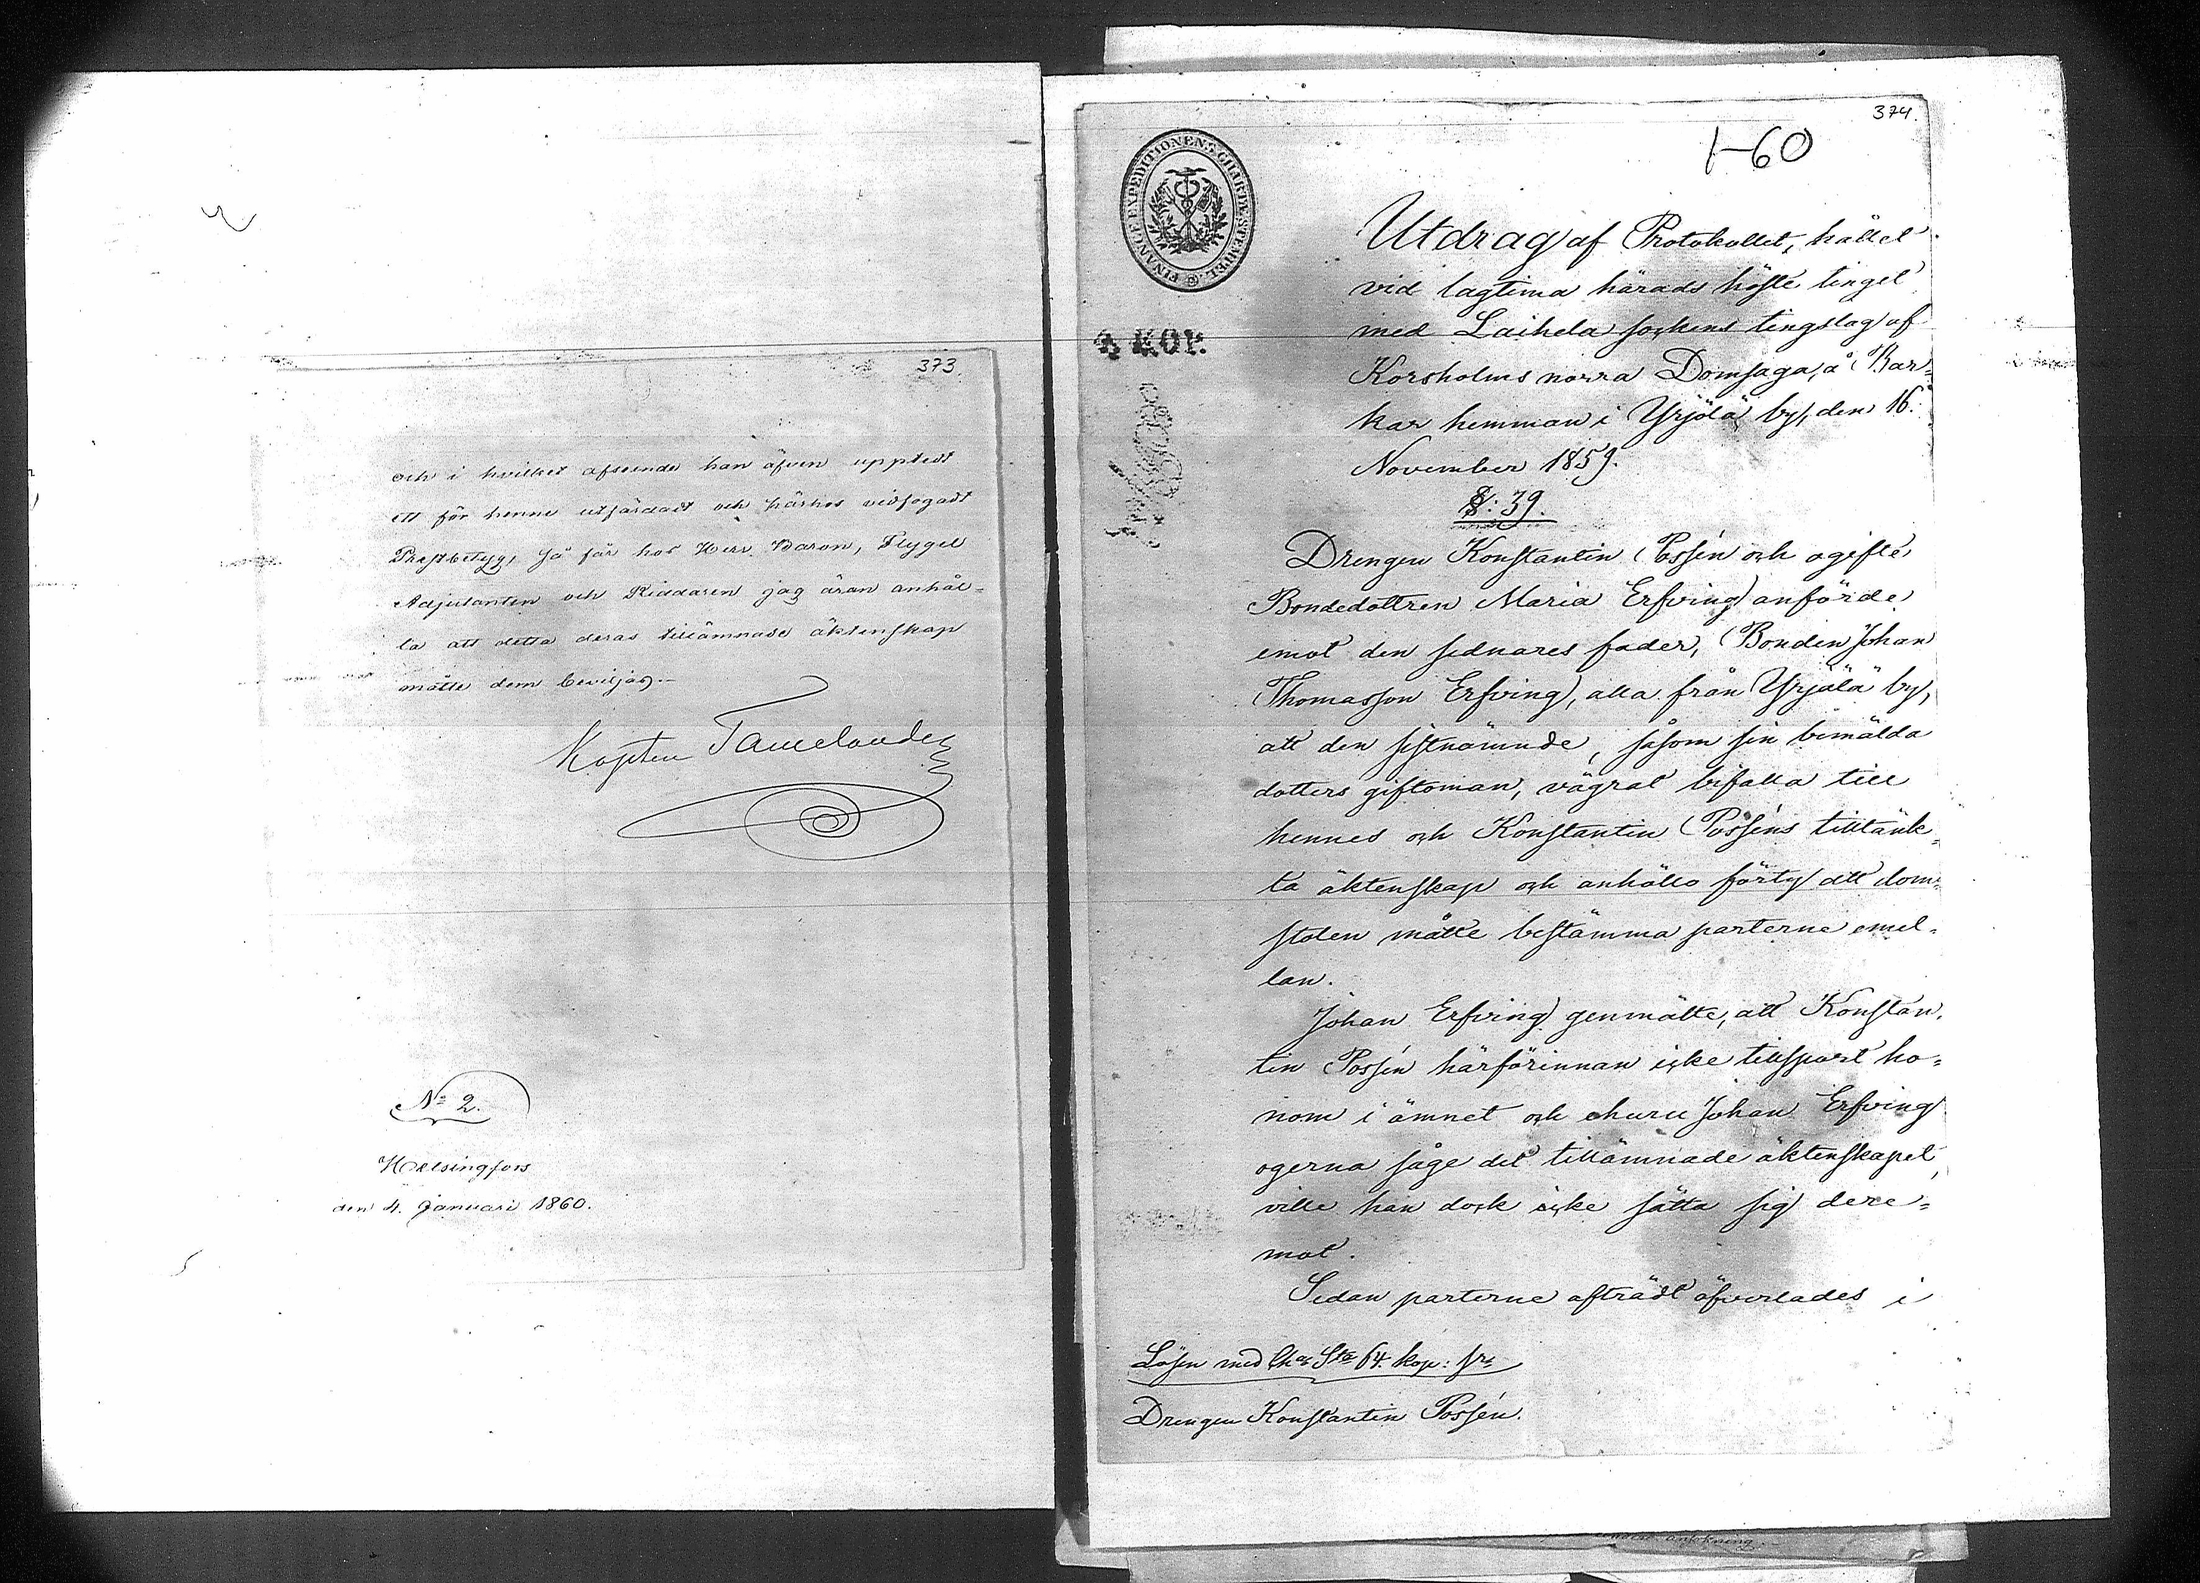 373.
och i hvilket afseende han äfven upptedt
ett för henne utfärdadt och härhos vidfogadt
Prestbetyg, så får hos Herr Baron, Flygel
Adjutanten och Riddaren jag äran anhål-
la att detta deras tillämnade äktenskap
måtte dem beviljas.
Kapten Tamelander
No 2.
Helsingfors
den 4. Januari 1860.
374.
1-60
FINANCE EXPEDITIONENS CHARTÆ STEMPEL
KOP.
Utdrag af Protokollet, hållet
vid lagtima härads höste tinget
med Laihela sockens tingslag af
Korsholms norra Domsaga, å Kar-
kar hemman i Yrjälä by, den 16.
November 1859.
§: 39.
Drengen Konstantin Possén och ogifte
Bondedottren Maria Erfving anförde
emot den sednares fader, Bonden Johan
Thomasson Erfving, alla från Yrjälä by,
att den sistnämnde, såsom sin bemälda
dotters giftoman, vägrat bifalla till
hennes och Konstantin Posséns tilltänk-
ta äktenskap och anhöllo förty att dom-
stolen måtte bestämma parterne emel-
lan.
Johan Erfving genmälte, att Konstan-
tin Possén härförinnan icke tillsport ho-
nom i ämnet och ehuru Johan Erfving
ogerna såge det tillämnade äktenskapet,
ville han dock icke sätta sig dere-
mot.
Sedan parterne afträdt öfverlades i
Lösen med Cha Sta 64. kop: frs
Drengen Konstantin Possén.